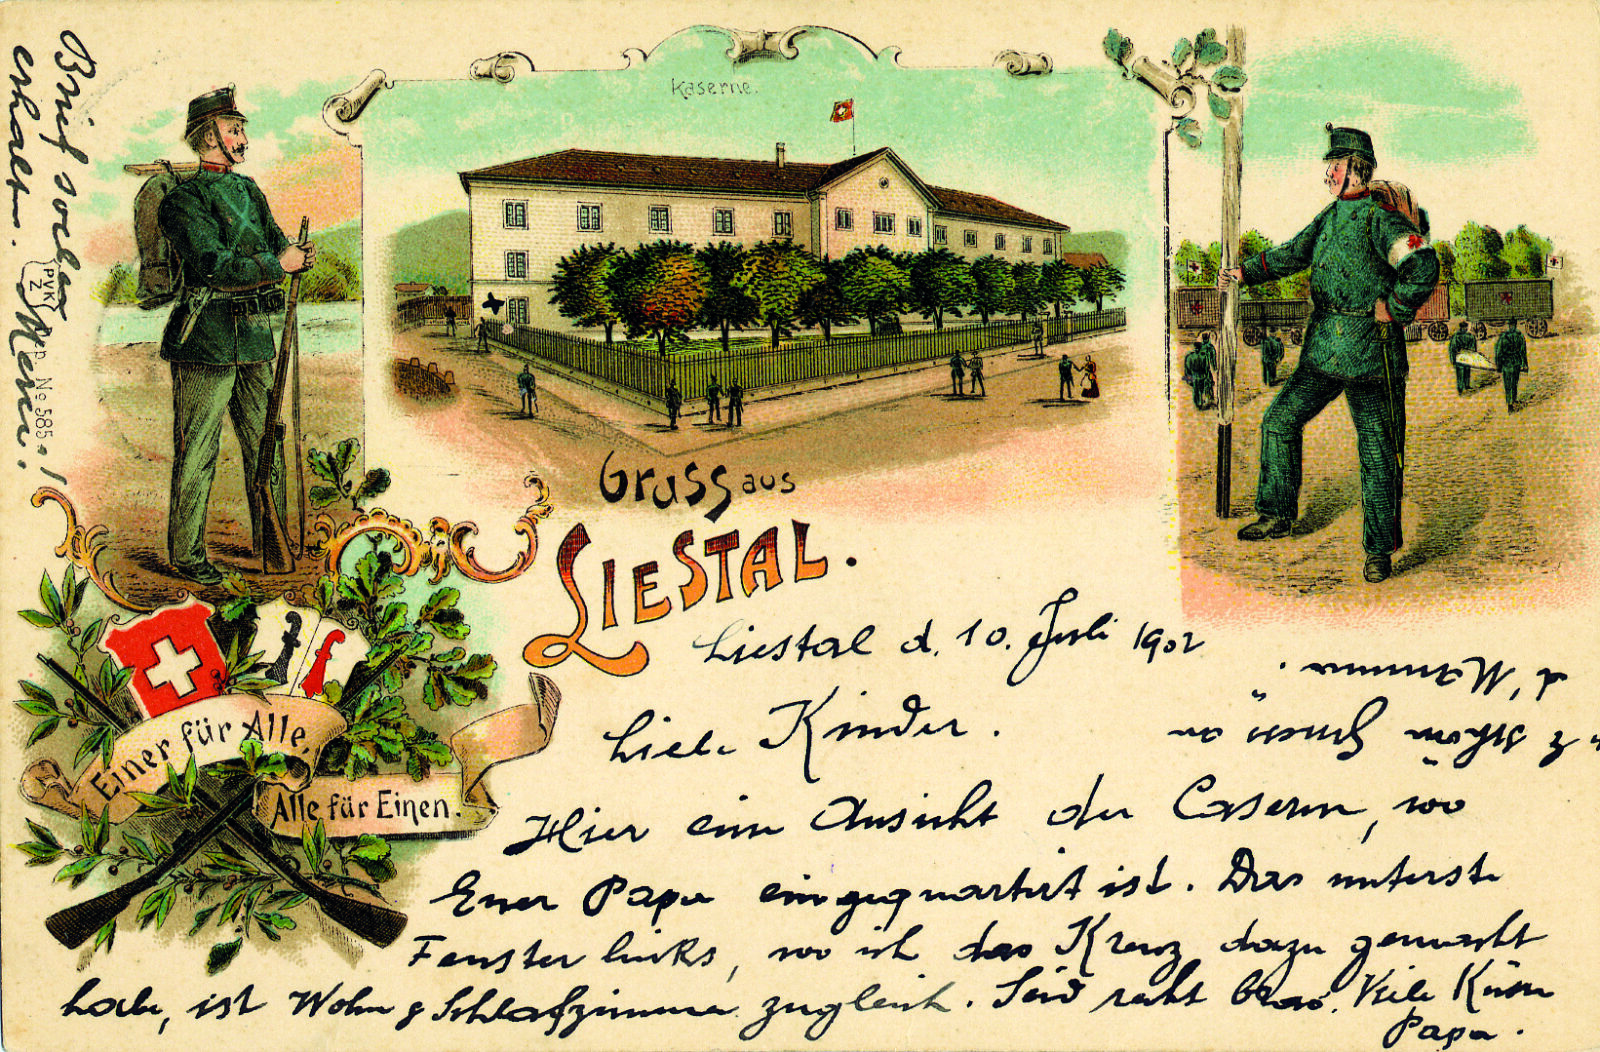 Kaserne.
Gruss aus
LIESTAL.
Einer für Alle,
Alle für Einen.
Liestal d. 10. Juli 1902
Liebe Kinder.
Hier eine Ansicht der Caserne, wo
Euer Papa einquartirt ist. Das unterste
Fenster links, wo ich das Kreuz dazu gemacht
habe, ist Wohn & Schlafzimmer zugleich. Seid recht brav. Viele Küsse
Papa.
Brief soeben
erhalten. Merci!
PVK
Z
No 585
schön grüssen an
d'Mamma.